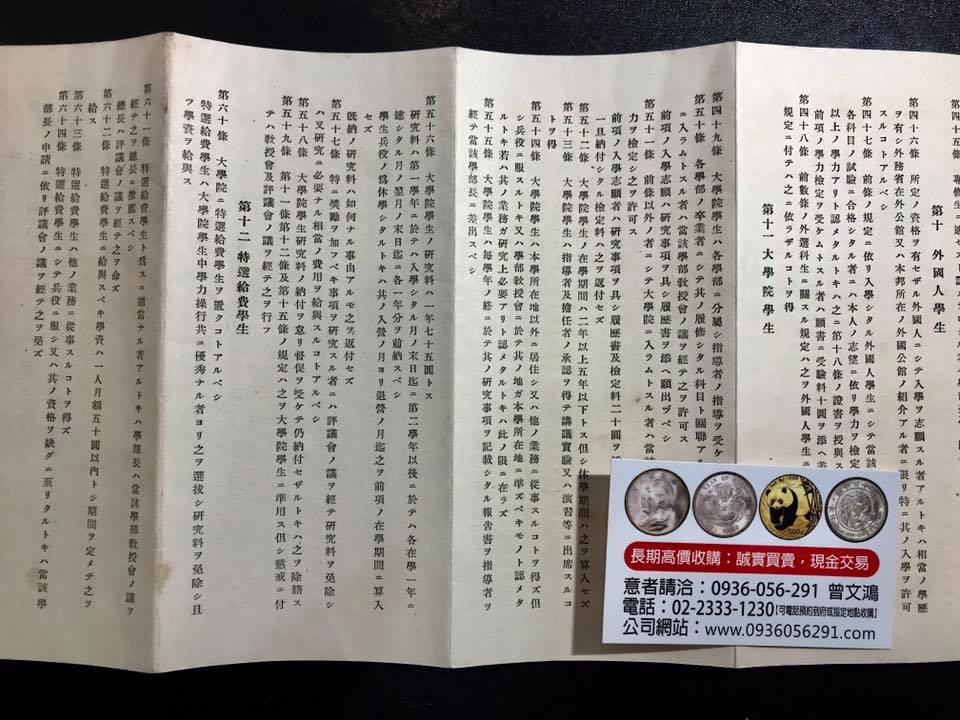 第四十五條 專修生
第十 外國人學生
第四十六條 所定ノ資格ヲ有セザル外國人ニシテ入學ヲ志願スル者アルトキハ相當ノ學歷
ヲ有シ外務省在外公館又ハ本邦所在ノ外國公館ノ紹介アル者ニ限リ特ニ其ノ入學ヲ許可
スルコトアルベシ
第四十七條 前條ノ規定ニ依リ入學シタル外國人學生ニシテ當該
各科目ノ試驗ニ合格シタル者ニハ本人ノ志望ニ依リ學力ヲ檢定
以上ノ學力アリト認メタルトキハ之ニ第十八條ノ證書ヲ授與ス
前項ノ學力檢定ヲ受ケムトスル者ハ願書ニ受驗料十圓ヲ添ヘ差
第四十八條 前數條ノ外選科生ニ關スル規定ハ之ヲ外國人學生ニ
規定ニ付テハ之ニ依ラザルコトヲ得
第十一 大學院學生
第四十九條 大學院學生ハ各學部ニ分屬シ指導者ノ指導ヲ受ケ
第五十條 各學部ノ卒業者ニシテ其ノ履修シタル科目ト關聯アル
ニ入ラムトスル者ハ當該學部敎授會ノ議ヲ經テ之ヲ許可ス
前項ノ入學志願者ハ研究事項ヲ具シ履歷書ヲ添ヘ願出ヅベシ
第五十一條 前條以外ノ者ニシテ大學院ニ入ラムトスル者ハ當該
力ヲ檢定シ之ヲ許可ス
前項ノ入學志願者ハ研究事項ヲ具シ履歷書及檢定料二十圓ヲ添
一旦納付シタル檢定料ハ之ヲ返付セズ
第五十二條 大學院學生ノ在學期間ハ二年以上五年以下トス但シ休學期間ハ之ヲ算入セズ
第五十三條 大學院學生ハ指導者及擔任者ノ承認ヲ得テ講議實驗又ハ演習等ニ出席スルコ
トヲ得
第五十四條 大學院學生ハ本學所在地以外ニ居住シ又ハ他ノ業務ニ從事スルコトヲ得ズ但
シ兵役ニ服スルトキ又ハ學部敎授會ニ於テ其ノ地ガ本學所在地ニ準ズベキモノト認メタ
ルトキ若ハ其ノ業務ガ研究上必要アリト認メタルトキハ此ノ限ニ在ラズ
第五十五條 大學院學生ハ每學年ノ終ニ於テ其ノ研究事項ヲ記載シタル報告書ヲ指導者ヲ
經テ當該學部長ニ差出スベシ
第五十六條 大學院學生ノ研究料ハ一年七十五圓トス
研究料ハ第一學年ニ於テハ入學シタル月ノ末日迄ニ第二學年以後ニ於テハ各在學一年ニ
達シタル月ノ翌月ノ末日迄ニ各一年分ヲ前納スベシ
學生兵役ノ爲休學シタルトキハ其ノ入營ノ月ヨリ退營ノ月迄之ヲ前項ノ在學期間ニ算入
セズ
旣納ノ研究料ハ如何ナル事由アルモ之ヲ返付セズ
第五十七條 特ニ奬勵ヲ加フベキ事項ヲ硏究スル者ニハ評議會ノ議ヲ經テ研究料ヲ免除シ
ハ又硏究ニ必要ナル相當ノ費用ヲ給與スルコトアルベシ
第五十八條 大學院學生研究料ノ納付ヲ怠リ督促ヲ受ケテ仍納付セザルトキハ之ヲ除籍ス
第五十九條 第十一條第十二條及第十五條ノ規定ハ之ヲ大學院學生ニ準用ス但シ懲戒ニ付
テハ敎授會及評議會ノ議ヲ經テ之ヲ行フ
第十二 特選給費學生
第六十條 大學院ニ特選給費學生ヲ置クコトアルベシ
特選給費學生ハ大學院學生中學力操行共ニ優秀ナル者ヨリ之ヲ選拔シ硏究料ヲ免除シ且
ツ學資ヲ給與ス
第六十一條 特選給費學生ト爲スニ適當ナル者アルトキハ學部長ハ當該學部敎授會ノ議ヲ
經テ之ヲ總長ニ推薦スベシ
總長ハ評議會ノ議ヲ經テ之ヲ命ズ
第六十二條 特選給費學生ニ給與スベキ學資ハ一人月額五十圓以內トシ期間ヲ定メテ之ヲ
給ス
第六十三條 特選給費學生ハ他ノ業務ニ從事スルコトヲ得ズ
第六十四條 特選給費學生ニシテ兵役ニ服シ又ハ其ノ資格ヲ缺グニ至リタルトキハ當該學
部長ノ申請ニ依リ評議會ノ議ヲ經テ之ヲ免ズ
長期高價收購：誠實買賣，現金交易
意者請洽：0936-056-291 曾文鴻
電話：02-2333-1230【可電話預約到府或指定地點收購】
公司網站：www.0936056291.com